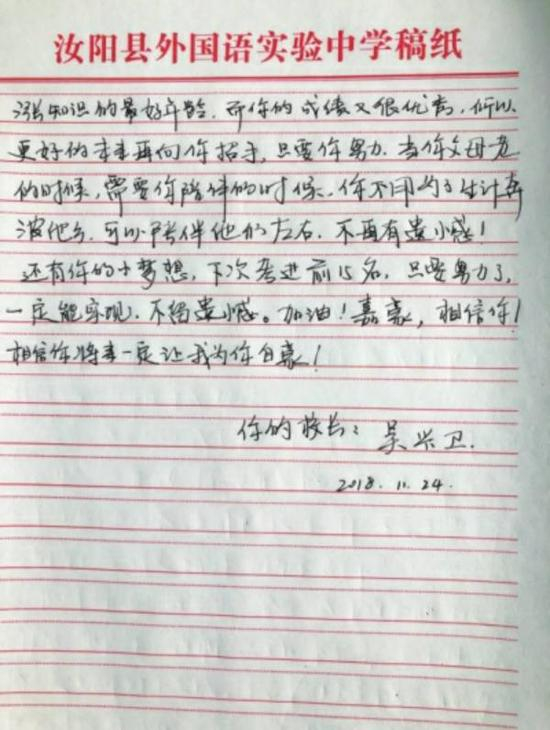 汝阳县外国语实验中学稿纸
涨知识的最好年龄，而你的成绩又很优秀，所以
更好的未来再向你招手，只要你努力，当你父母老
的时候，需要你陪伴的时候，你不用为了生计奔
波他乡，可以陪伴他们左右，不再有遗憾！
还有你的小梦想，下次考进前15名，只要努力了，
一定能实现，不留遗憾。加油！嘉豪，相信你！
相信你将来一定让我为你自豪！
你的校长：吴兴卫.
2018.11.24.